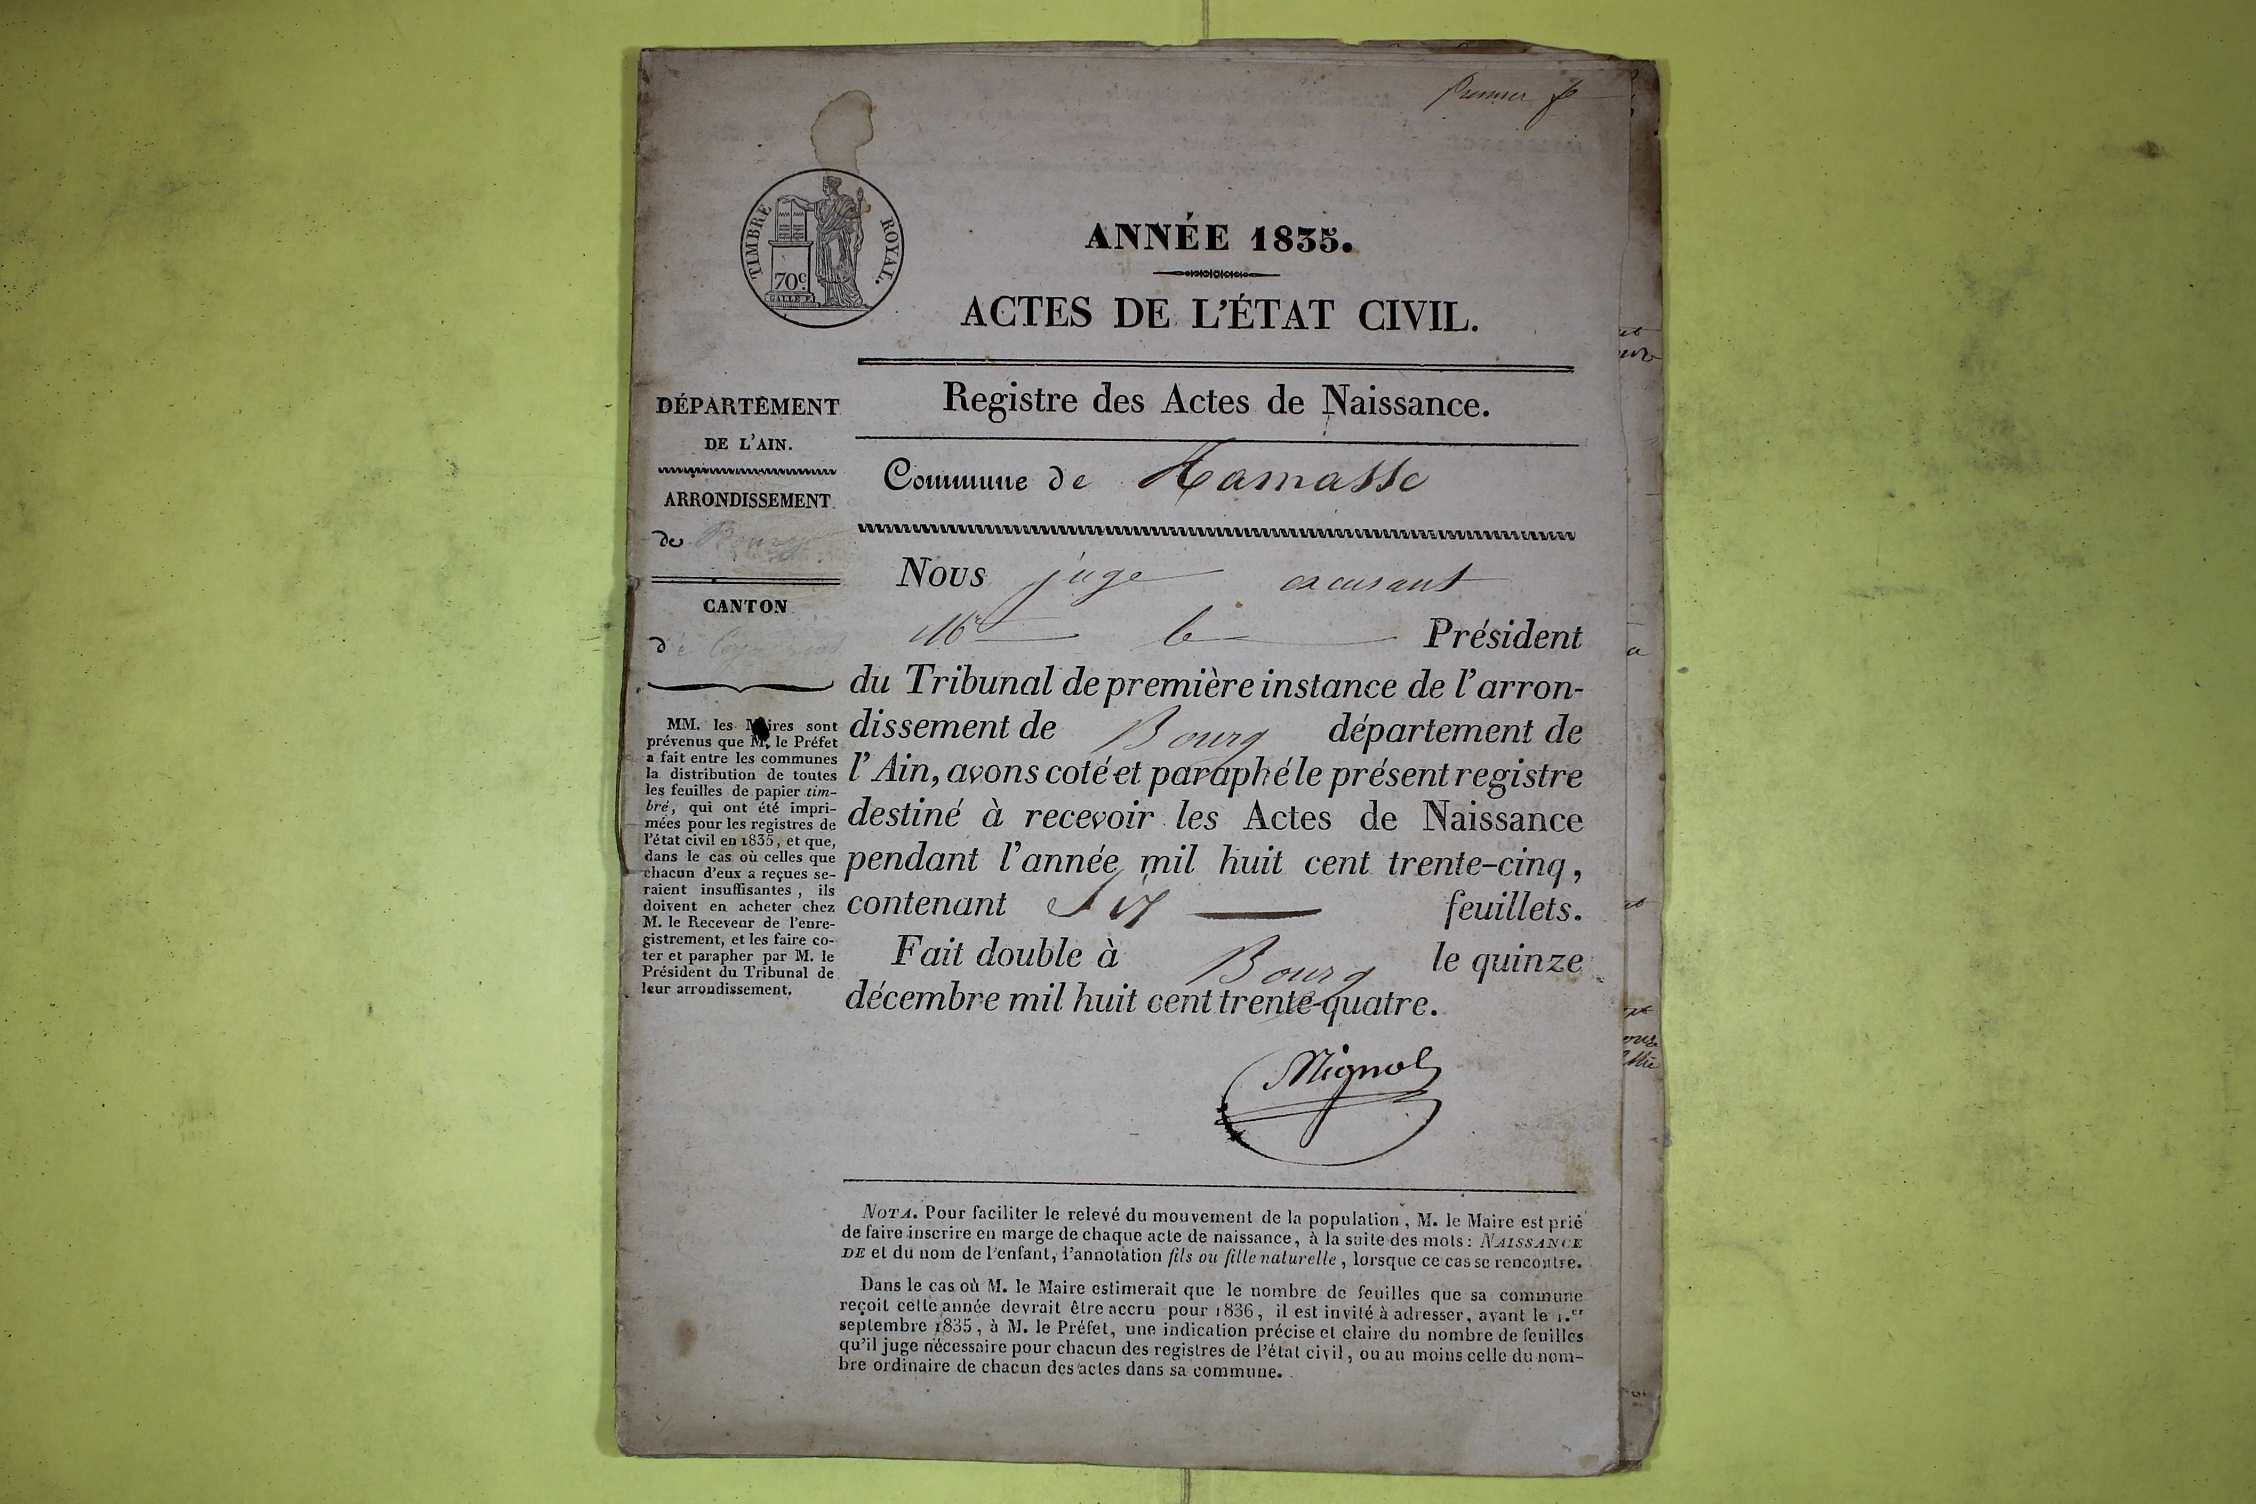 Premier f
TIMBRE ROYAL.
70c.
ANNÉE 1835.
ACTES DE L'ÉTAT CIVIL.
Registre des Actes de Naissance.
DÉPARTEMENT
DE L'AIN.
ARRONDISSEMENT
de Bourg
CANTON
de
MM. les Maires sont
prévenus que M. le Préfet
a fait entre les communes
la distribution de toutes
les feuilles de papier tim-
bré, qui ont été impri-
mées pour les registres de
l'état civil en 1835, et que,
dans le cas où celles que
chacun d'eux a reçues se-
raient insuffisantes, ils
doivent en acheter chez
M. le Receveur de l'enre-
gistrement, et les faire co-
ter et parapher par M. le
Président du Tribunal de
leur arrondissement.
Commune de Ramasse
Nous juge
Mr le Président
du Tribunal de première instance de l'arron-
dissement de Bourg département de
l'Ain, avons coté et paraphé le présent registre
destiné à recevoir les Actes de Naissance
pendant l'année mil huit cent trente-cinq,
contenant Six feuillets.
Fait double à Bourg le quinze
décembre mil huit cent trente-quatre.
Mignol
NOTA. Pour faciliter le relevé du mouvement de la population, M. le Maire est prié
de faire inscrire en marge de chaque acte de naissance, à la suite des mots: NAISSANCE
DE et du nom de l'enfant, l'annotation fils ou fille naturelle, lorsque ce cas se rencontre.
Dans le cas où M. le Maire estimerait que le nombre de feuilles que sa commune
reçoit cette année devrait être accru pour 1836, il est invité à adresser, avant le 1.er
septembre 1835, à M. le Préfet, une indication précise et claire du nombre de feuilles
qu'il juge nécessaire pour chacun des registres de l'état civil, ou au moins celle du nom-
bre ordinaire de chacun des actes dans sa commune.